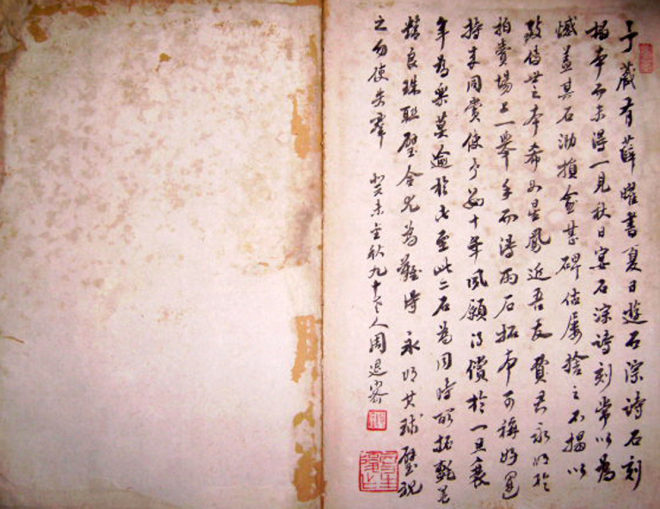 予藏有薛曜書夏日遊石淙詩石刻
搨本而未得一見秋日宴石淙詩刻常以為
憾蓋其石泐損愈甚碑估屢捨之不搨以
致傳世之本希如星鳳近吾友費君永明於
拍賣場上一舉手而得兩石拓本可稱好運
持來同賞使予數十年夙願得償於一旦衰
年為樂莫逾於此至此二石為同時所拓氈墨
精良珠聯璧合尤為難得永明其球璧視
之勿使失群 癸未秋九十人周退密